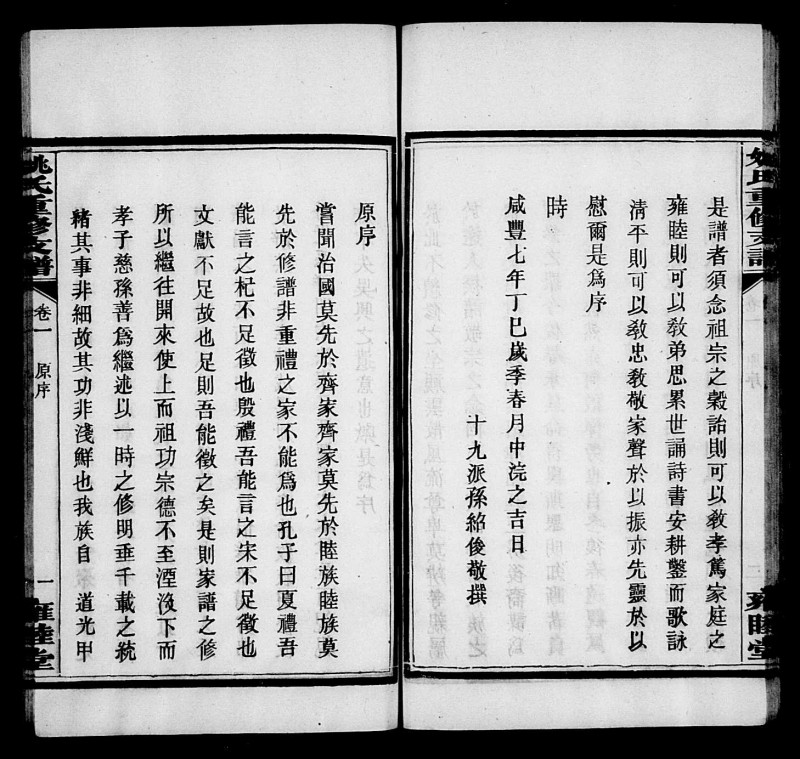 是譜者須念祖宗之穀詒則可以敎孝篤家庭之
雍睦則可以敎弟思累世誦詩書安耕鑿而歌詠
淸平則可以敎忠敎敬家聲於以振亦先靈於以
慰爾是爲序
時
咸豐七年丁巳歲季春月中浣之吉日
十九派孫紹俊敬撰
姚氏重修支譜
二
雍睦堂
姚氏重修支譜
卷一
原序
一
雍睦堂
原序
嘗聞治國莫先於齊家齊家莫先於睦族睦族莫
先於修譜非重禮之家不能爲也孔子曰夏禮吾
能言之杞不足徵也殷禮吾能言之宋不足徵也
文獻不足故也足則吾能徵之矣是則家譜之修
所以繼往開來使上而祖功宗德不至湮沒下而
孝子慈孫善爲繼述以一時之修明垂千載之統
緖其事非細故其功非淺鮮也我族自 道光甲